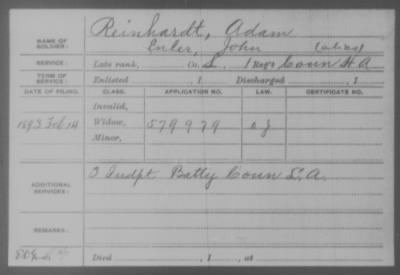 NAME OF SOLDIER: Reinhardt, Adam
Enler, John (alias)
SERVICE: Late rank, Co. L, 1 Reg't Conn H A
TERM OF SERVICE: Enlisted , 1 Discharged , 1
DATE OF FILING. CLASS. APPLICATION NO. LAW. CERTIFICATE NO.
Invalid,
1893 Feb 14 Widow, 579979
Minor,
ADDITIONAL SERVICES: 3 Indpt. Batty Conn L. A.
REMARKS:
Died , 1 , at